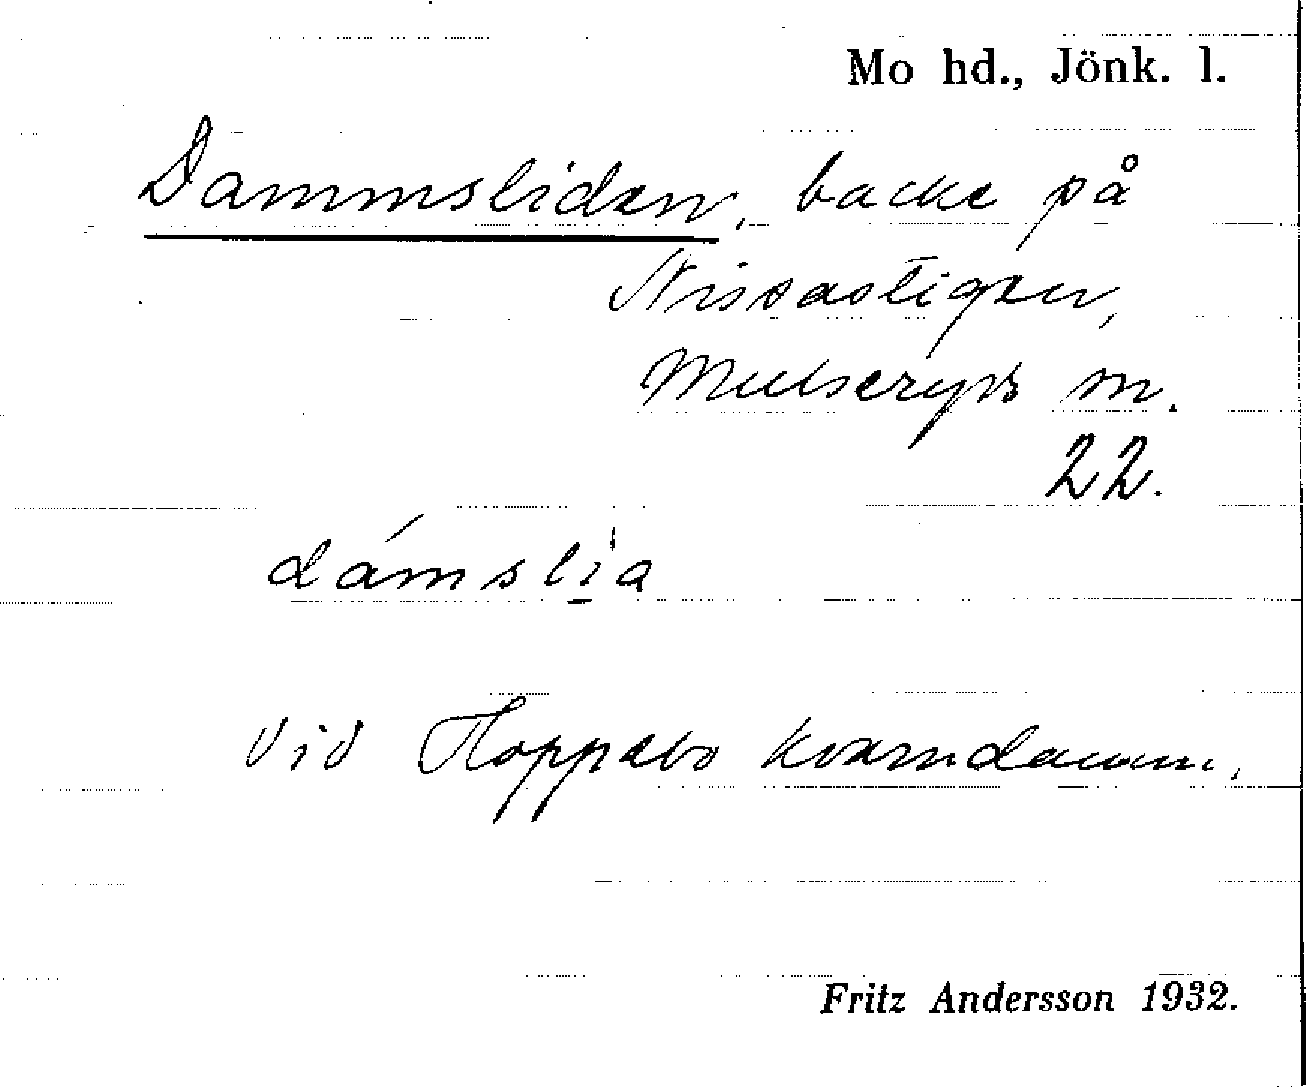 Mo hd., Jönk. l.
Dammsliden, backe på
Nissastigen,
Mulseryds m.
22.
dámsli̱a
Vid Hoppets kvarndamm.
Fritz Andersson 1932.